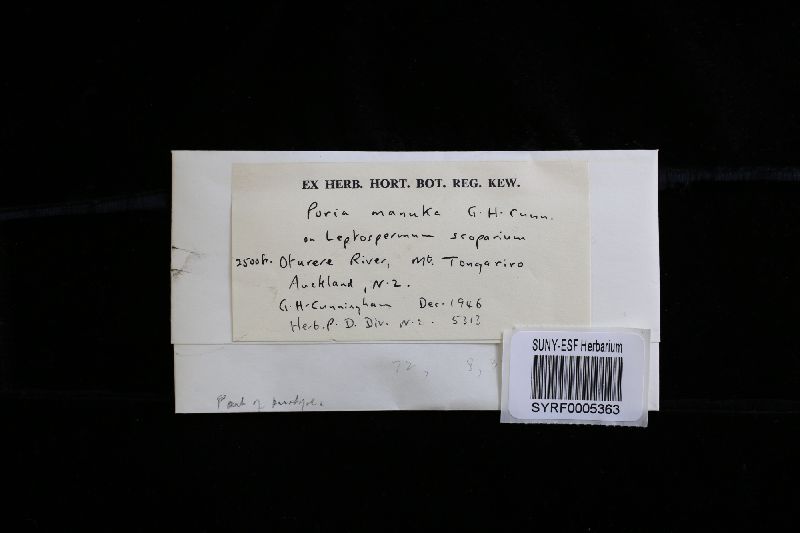 EX HERB. HORT. BOT. REG. KEW.
Poria manuka G.H. Cunn.
on Leptospermum scoparium
2500ft. Oturere River, Mt. Tongariro
Auckland, N.Z.
G.H. Cunningham Dec. 1946
Herb. P. D. Div. N.Z. 5313
SUNY-ESF Herbarium
SYRF0005363
Part of